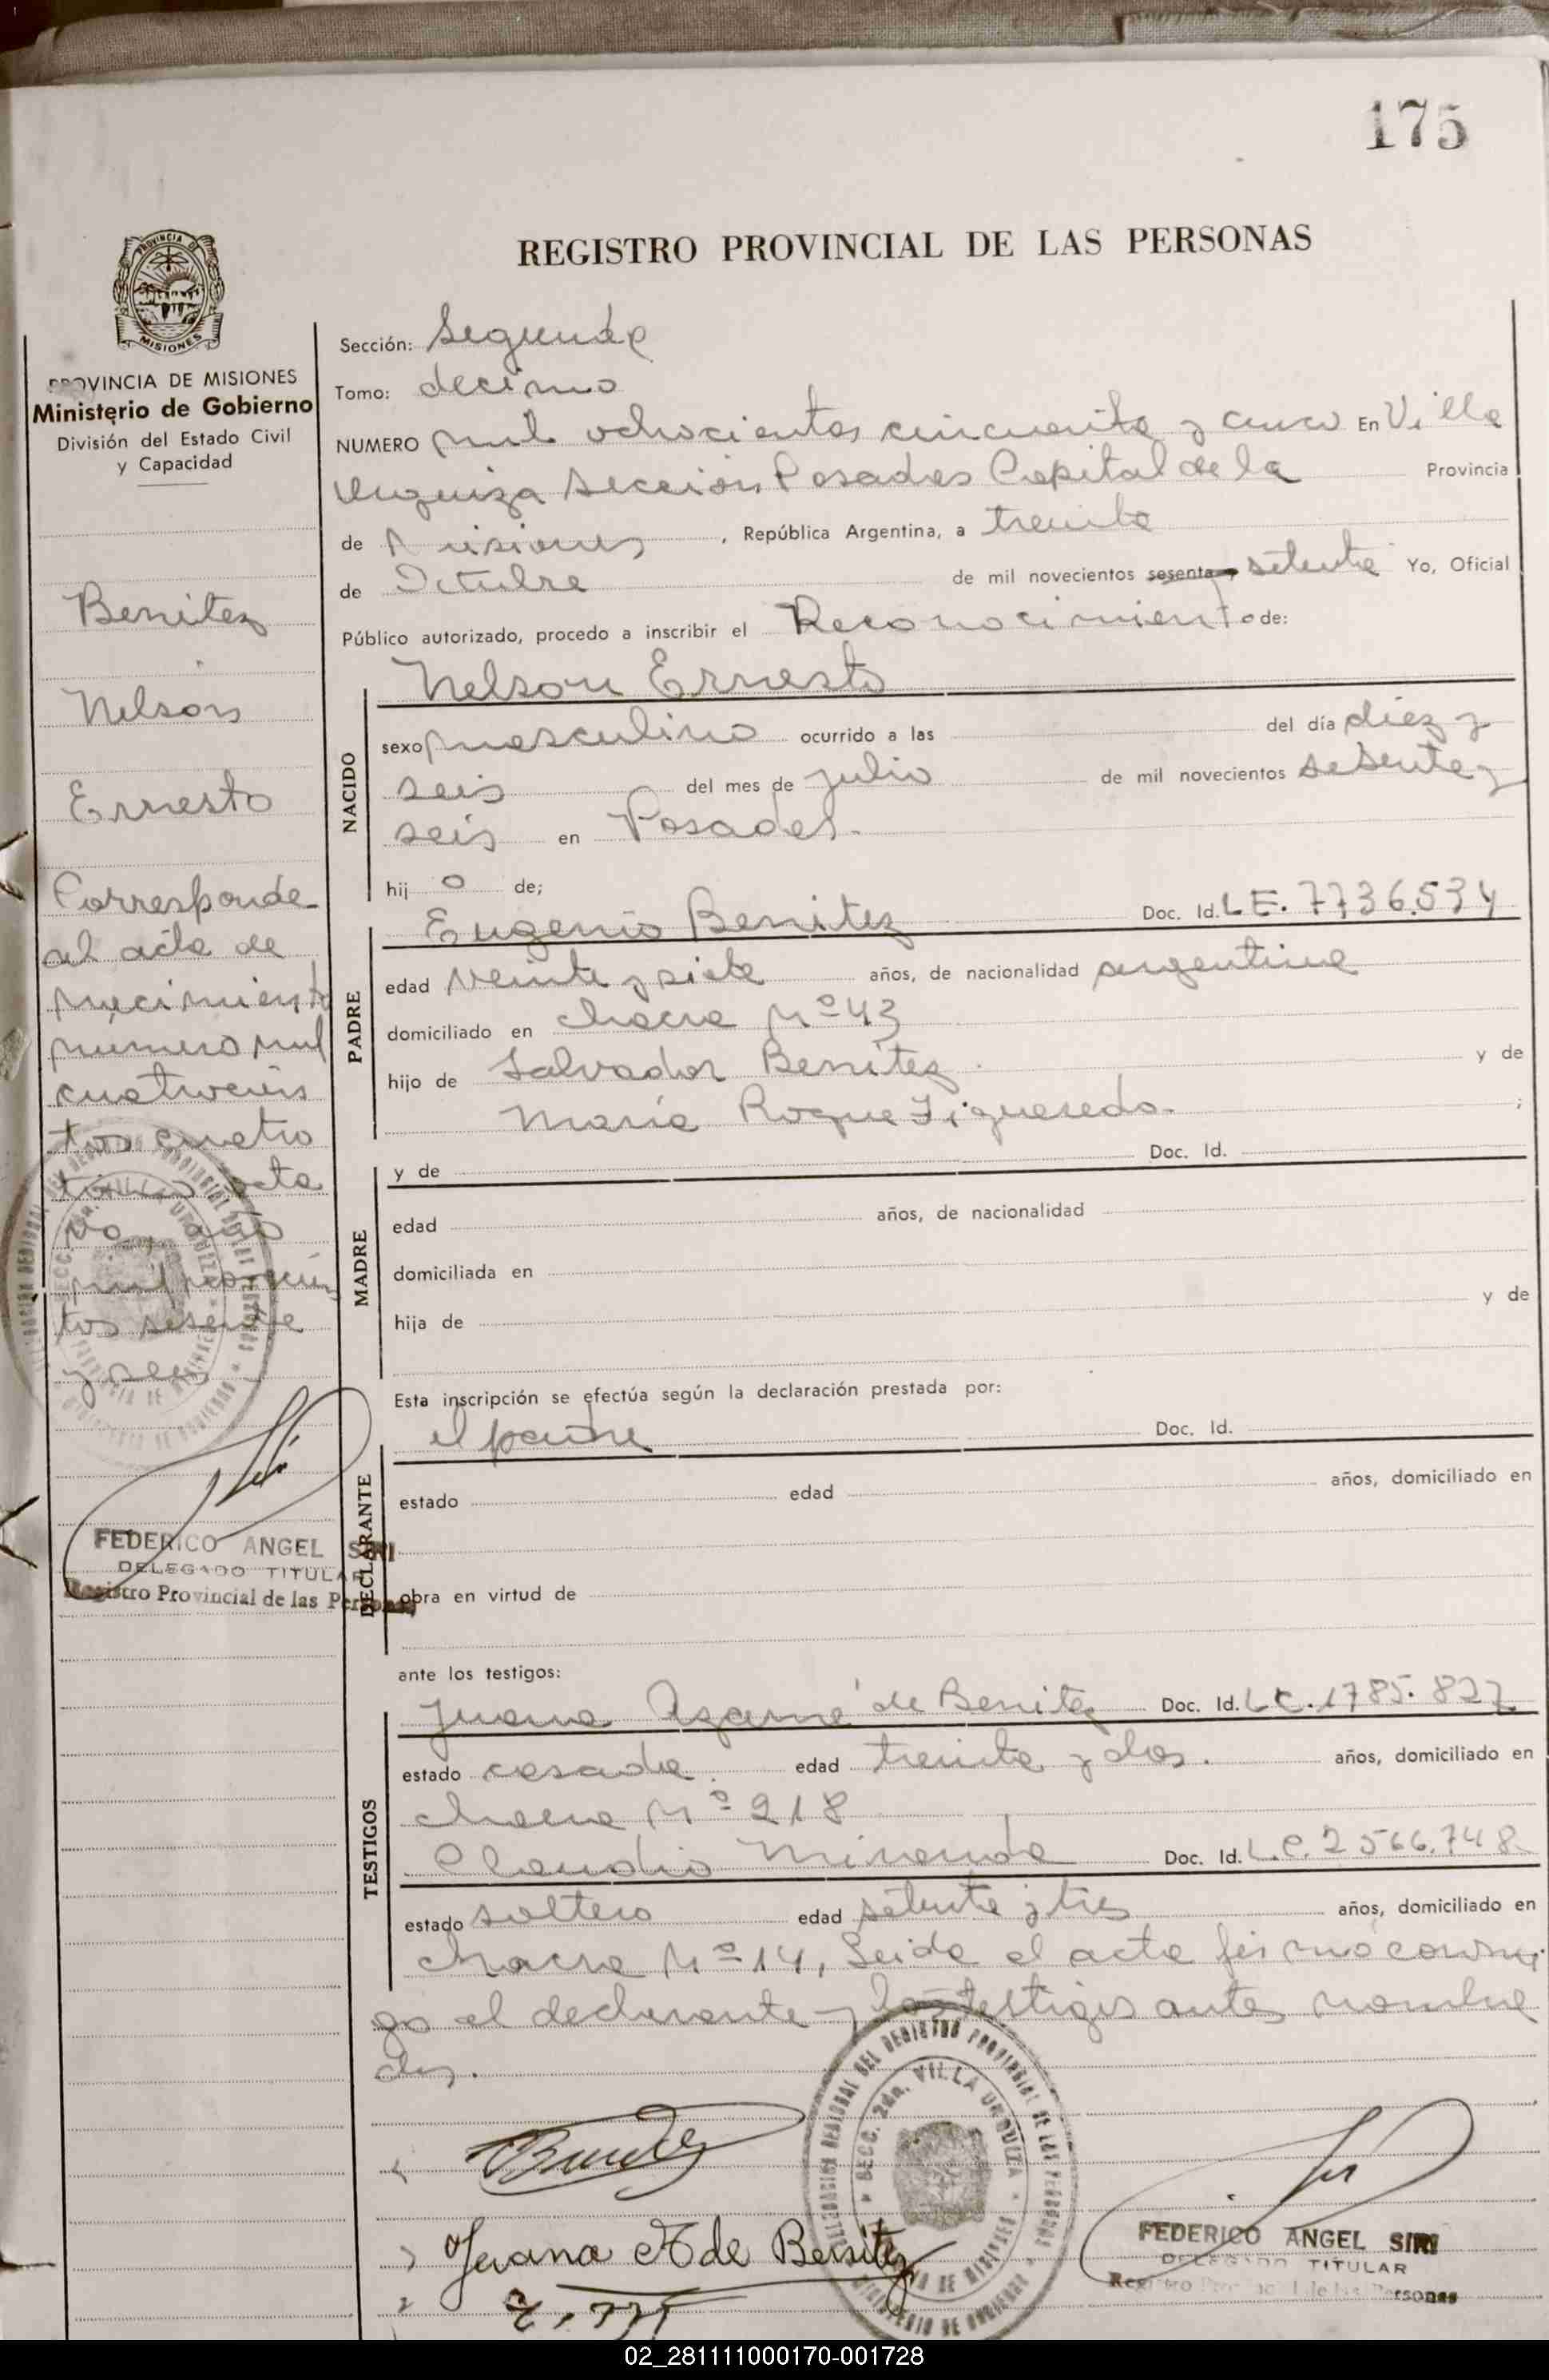 175
REGISTRO PROVINCIAL DE LAS PERSONAS
PROVINCIA DE MISIONES
Ministerio de Gobierno
División del Estado Civil
y Capacidad
Benitez
Nelson
Ernesto
Corresponde
al acta de
nacimiento
numero mil
cuatrocien
tos cuatro
tomo octa
vo, año
mil novecien
tos sesenta
y seis
FEDERICO ANGEL SIRI
DELEGADO TITULAR
Registro Provincial de las Personas
Sección: Segunda
Tomo: decimo
NUMERO mil ochocientos cincuenta y cinco En Villa
Urquiza Sección Posadas Capital de la Provincia
de Misiones, República Argentina, a treinta
de Octubre de mil novecientos sesenta y setenta Yo, Oficial
Público autorizado, procedo a inscribir el Reconocimiento de:
NACIDO
Nelson Ernesto
sexo masculino ocurrido a las del día diez y
seis del mes de julio de mil novecientos sesenta y
seis en Posadas.
hij o de;
PADRE
Eugenio Benitez Doc. Id. L.E. 7736.534
edad veinte y siete años, de nacionalidad argentina
domiciliado en chacra Nº 43
hijo de Salvador Benítez y de
María Roque Figueredo. ;
MADRE
y de Doc. Id.
edad años, de nacionalidad
domiciliada en
hija de y de
Esta inscripción se efectúa según la declaración prestada por:
DECLARANTE
el padre Doc. Id.
estado edad años, domiciliado en
obra en virtud de
ante los testigos:
TESTIGOS
Juana de Benitez Doc. Id. L.C. 1785.827
estado casada. edad treinta y dos. años, domiciliado en
chacra Nº 218
Claudio Miranda Doc. Id. L.E. 2566.748
estado soltero edad setenta y tres años, domiciliado en
chacra Nº 14, Leida el acta firmó conmi
go el declarante y los testigos antes nombra
dos.
Benitez
Juana A de Benitez
SECC. 2da. VILLA URQUIZA
FEDERICO ANGEL SIRI
DELEGADO TITULAR
Registro Provincial de las Personas
02_281111000170-001728